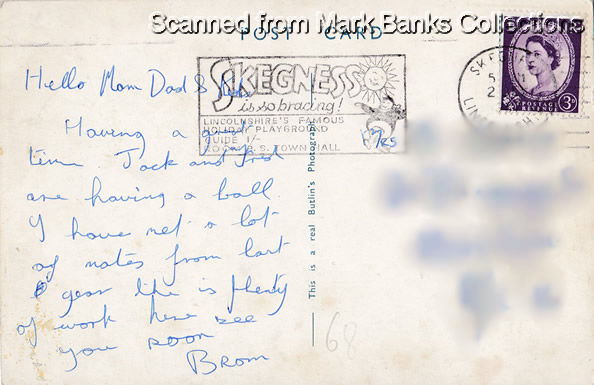 Scanned from Mark Banks Collections
POST CARD
SKEGNESS
is so bracing!
LINCOLNSHIRE'S FAMOUS
HOLIDAY PLAYGROUND
GUIDE 1/-
ROOM B. S. TOWN HALL
SKEG
POSTAGE
3D
Hello Mom Dad &
Having a
time Jack and Fred
are having a ball.
I have met a lot
of mates from last
year there is plenty
of work here see
you soon
Brom
This is a real Butlin's Photograph
68